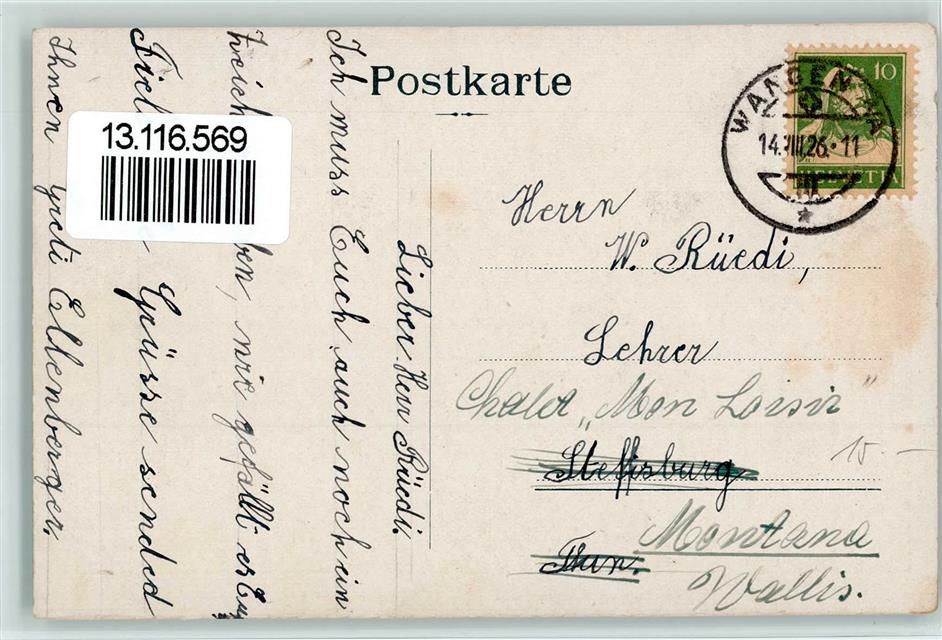 Postkarte
13.116.569
10
HELVETIA
WANGEN
14.VIII.26.-11
Lieber Herr Rüedi.
Ich muss Euch auch noch ein
ben, wie gefällt es Eu
Grüsse sendet
Ihnen Greti Ellenberger.
Herrn
W. Rüedi,
Lehrer
Chalet „Mon Loisir"
Steffisburg
Thun.
Montana
Wallis.
15.-